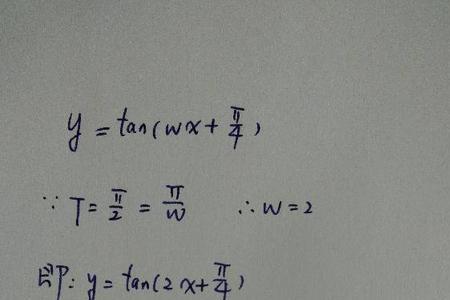 y = tan(wx + π/4)
∵ T = π/2 = π/w ∴ w = 2
即: y = tan(2x + π/4)